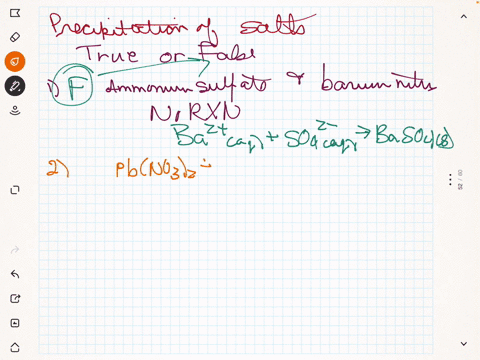 Precipitation of salts
True or False
1) F Ammonium sulfate & barium nitra
N. RXN
Ba²⁺(aq) + SO₄²⁻(aq) → BaSO₄(s)
2) Pb(NO₃)₂